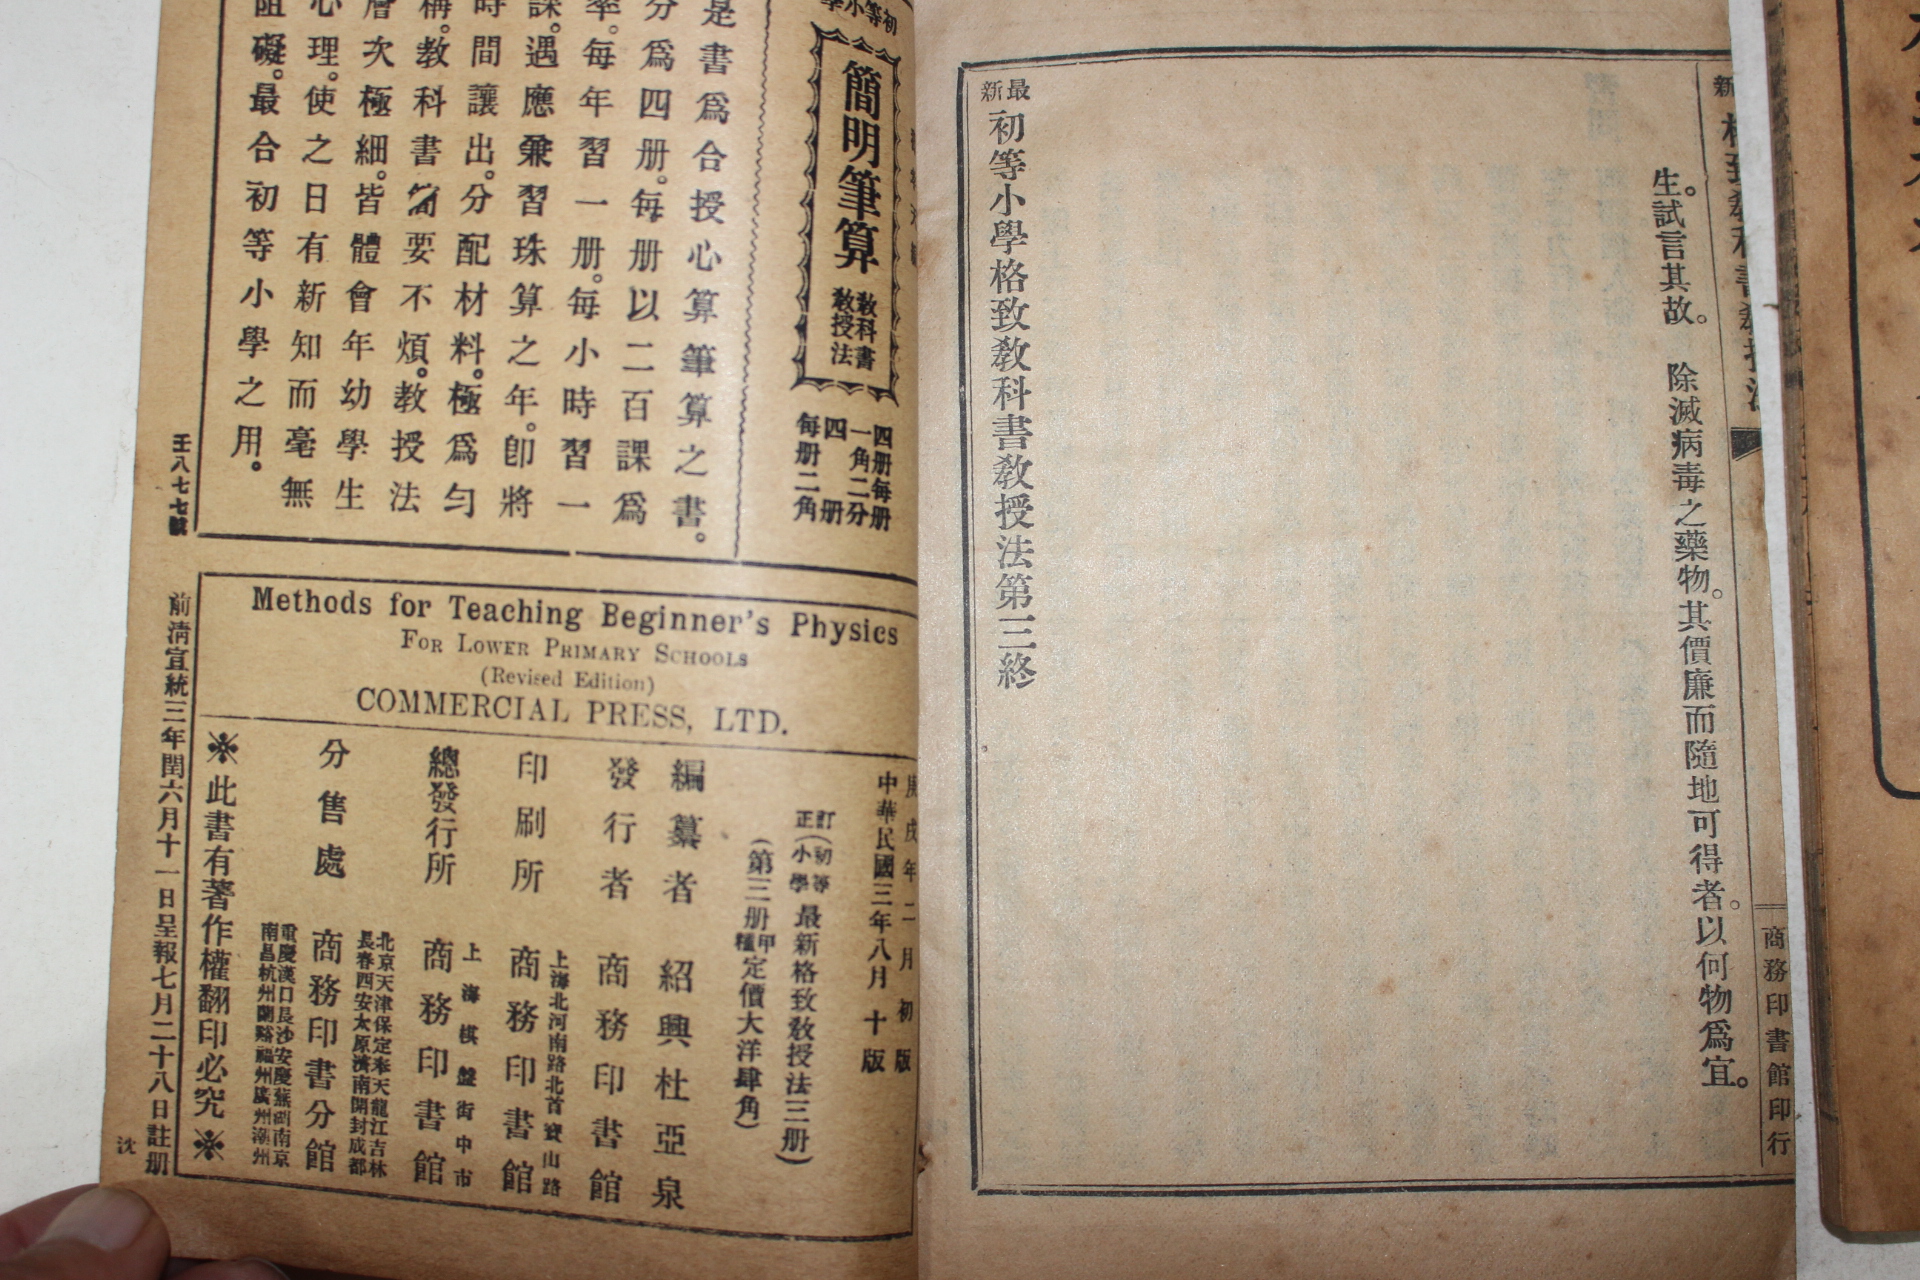 生。試言其故。　除滅病毒之藥物。其價廉而隨地可得者。以何物爲宜。
最新初等小學格致教科書教授法第三終
商務印書館印行
簡明筆算
教科書
教授法
四册每册一角二分
四册每册二角
是書爲合授心算筆算之書。
分爲四册。每册以二百課爲
率。每年習一册。每小時習一
課。遇應兼習珠算之年。卽將
時間讓出。分配材料。極爲勻
稱。教科書簡要不煩。教授法
層次極細。皆體會年幼學生
心理。使之日有新知而毫無
阻礙。最合初等小學之用。
王八七七號
Methods for Teaching Beginner's Physics
FOR LOWER PRIMARY SCHOOLS
(Revised Edition)
COMMERCIAL PRESS, LTD.
庚戌年二月初版
中華民國三年八月十版
訂正(初等小學最新格致教授法三册)
(第三册甲種定價大洋肆角)
編纂者　紹興杜亞泉
發行者　商務印書館
印刷所　上海北河南路北首寶山路　商務印書館
總發行所　上海棋盤街中市　商務印書館
分售處　商務印書分館
北京天津保定奉天龍江吉林
長春西安太原濟南開封成都
重慶漢口長沙安慶蕪湖南京
南昌杭州蘭谿福州廣州潮州
※此書有著作權翻印必究※
前淸宣統三年閏六月十一日呈報七月二十八日註册
沈